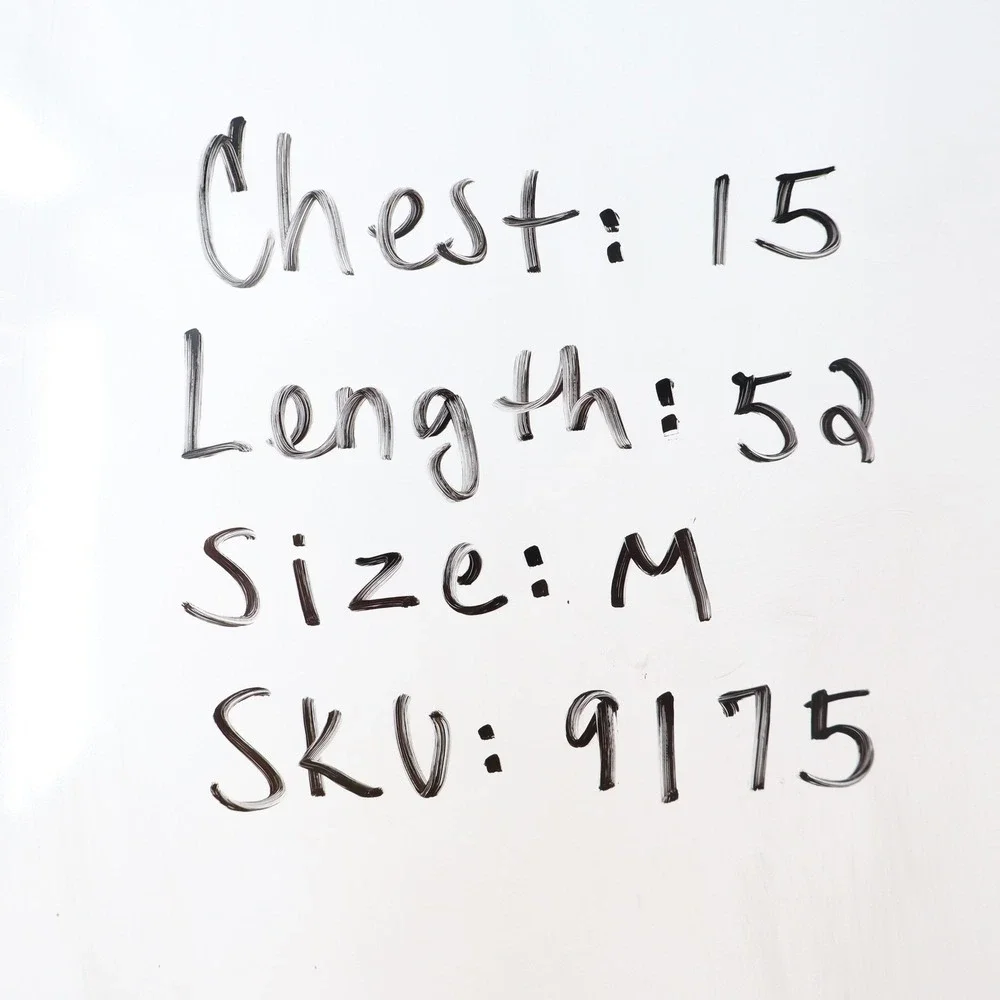 Chest: 15
Length: 52
Size: M
SKU: 9175